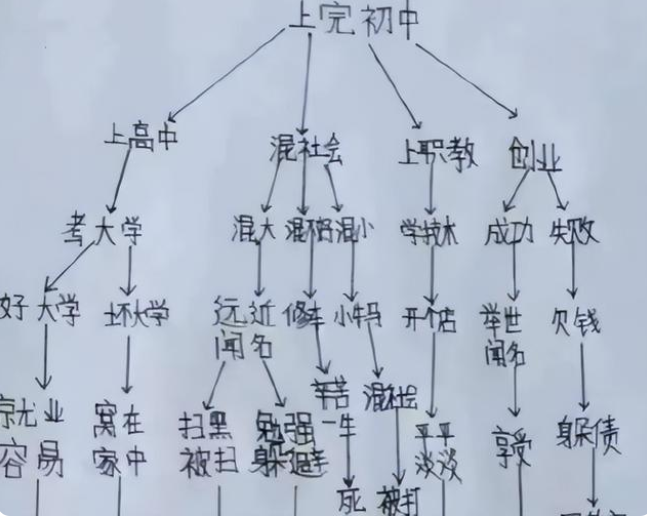 上完初中
上高中 混社会 上职教 创业
考大学 混大 混不好 混小 学技术 成功 失败
好大学 坏大学 远近 修车 小牛马 开个店 举世 欠钱
闻名 闻名
辛苦 混社会
就业 窝在 扫黑 勉强 一生 平平 享受 躲债
容易 家中 被扫 躲避 淡淡
死 被打